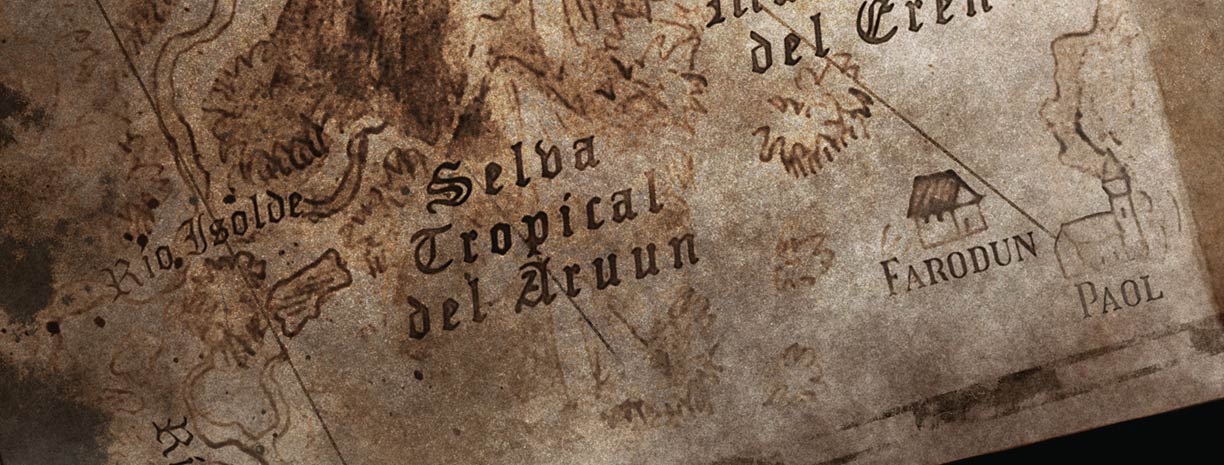 del Eren
Selva
Tropical
del Aruun
Río Isolde
FARODUN
PAOL